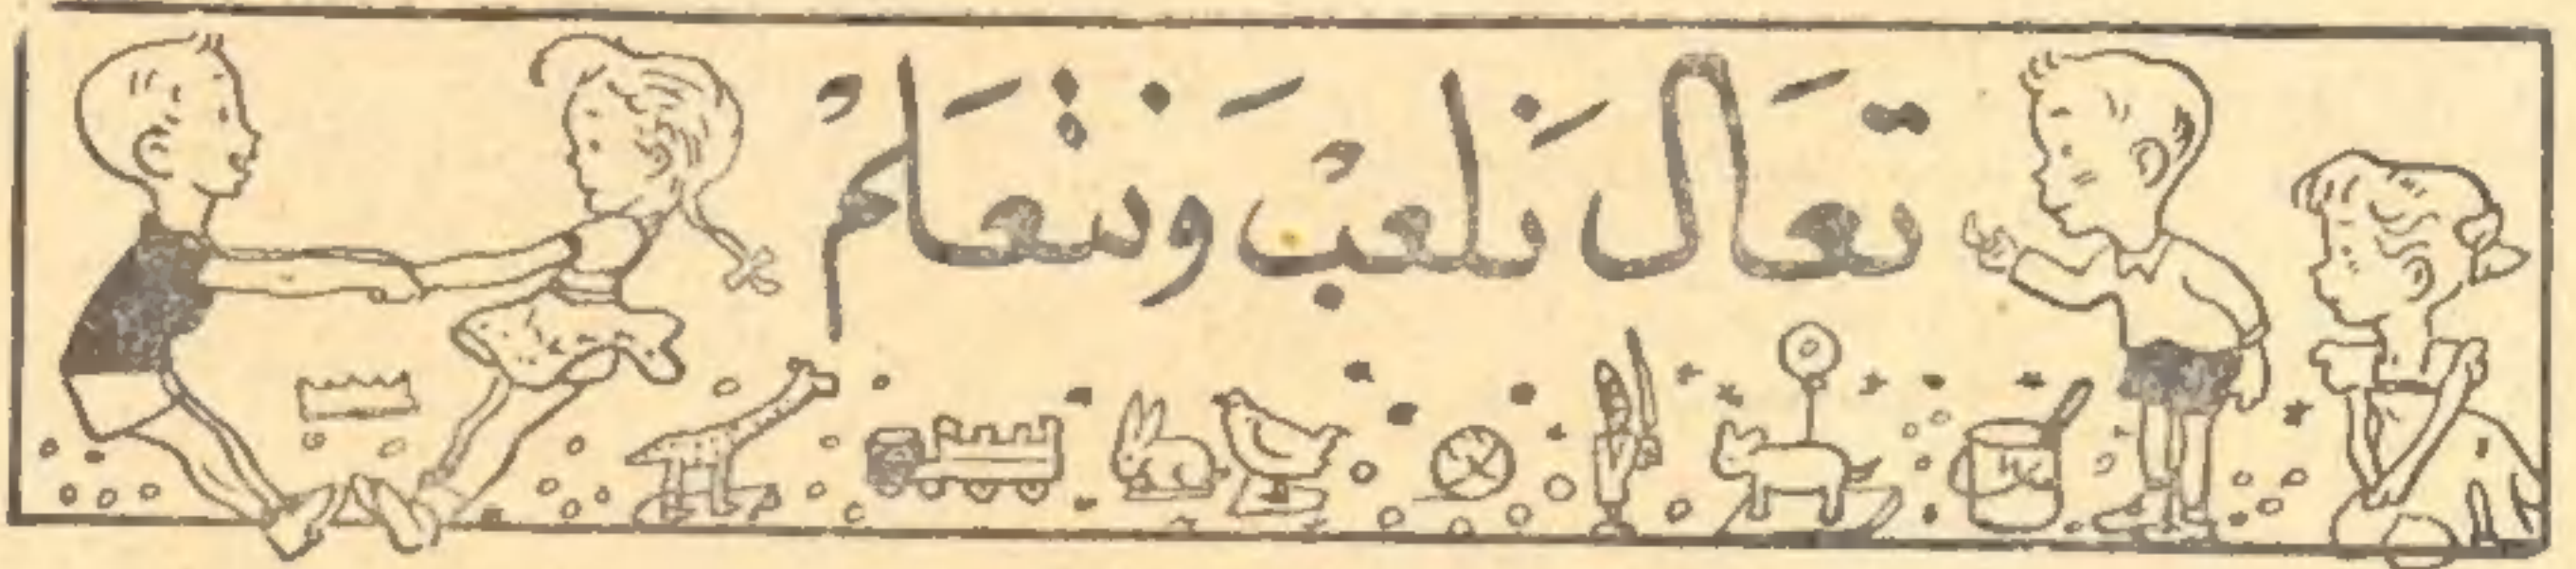 تَعَال نَلعبْ وَنتعَلمْ